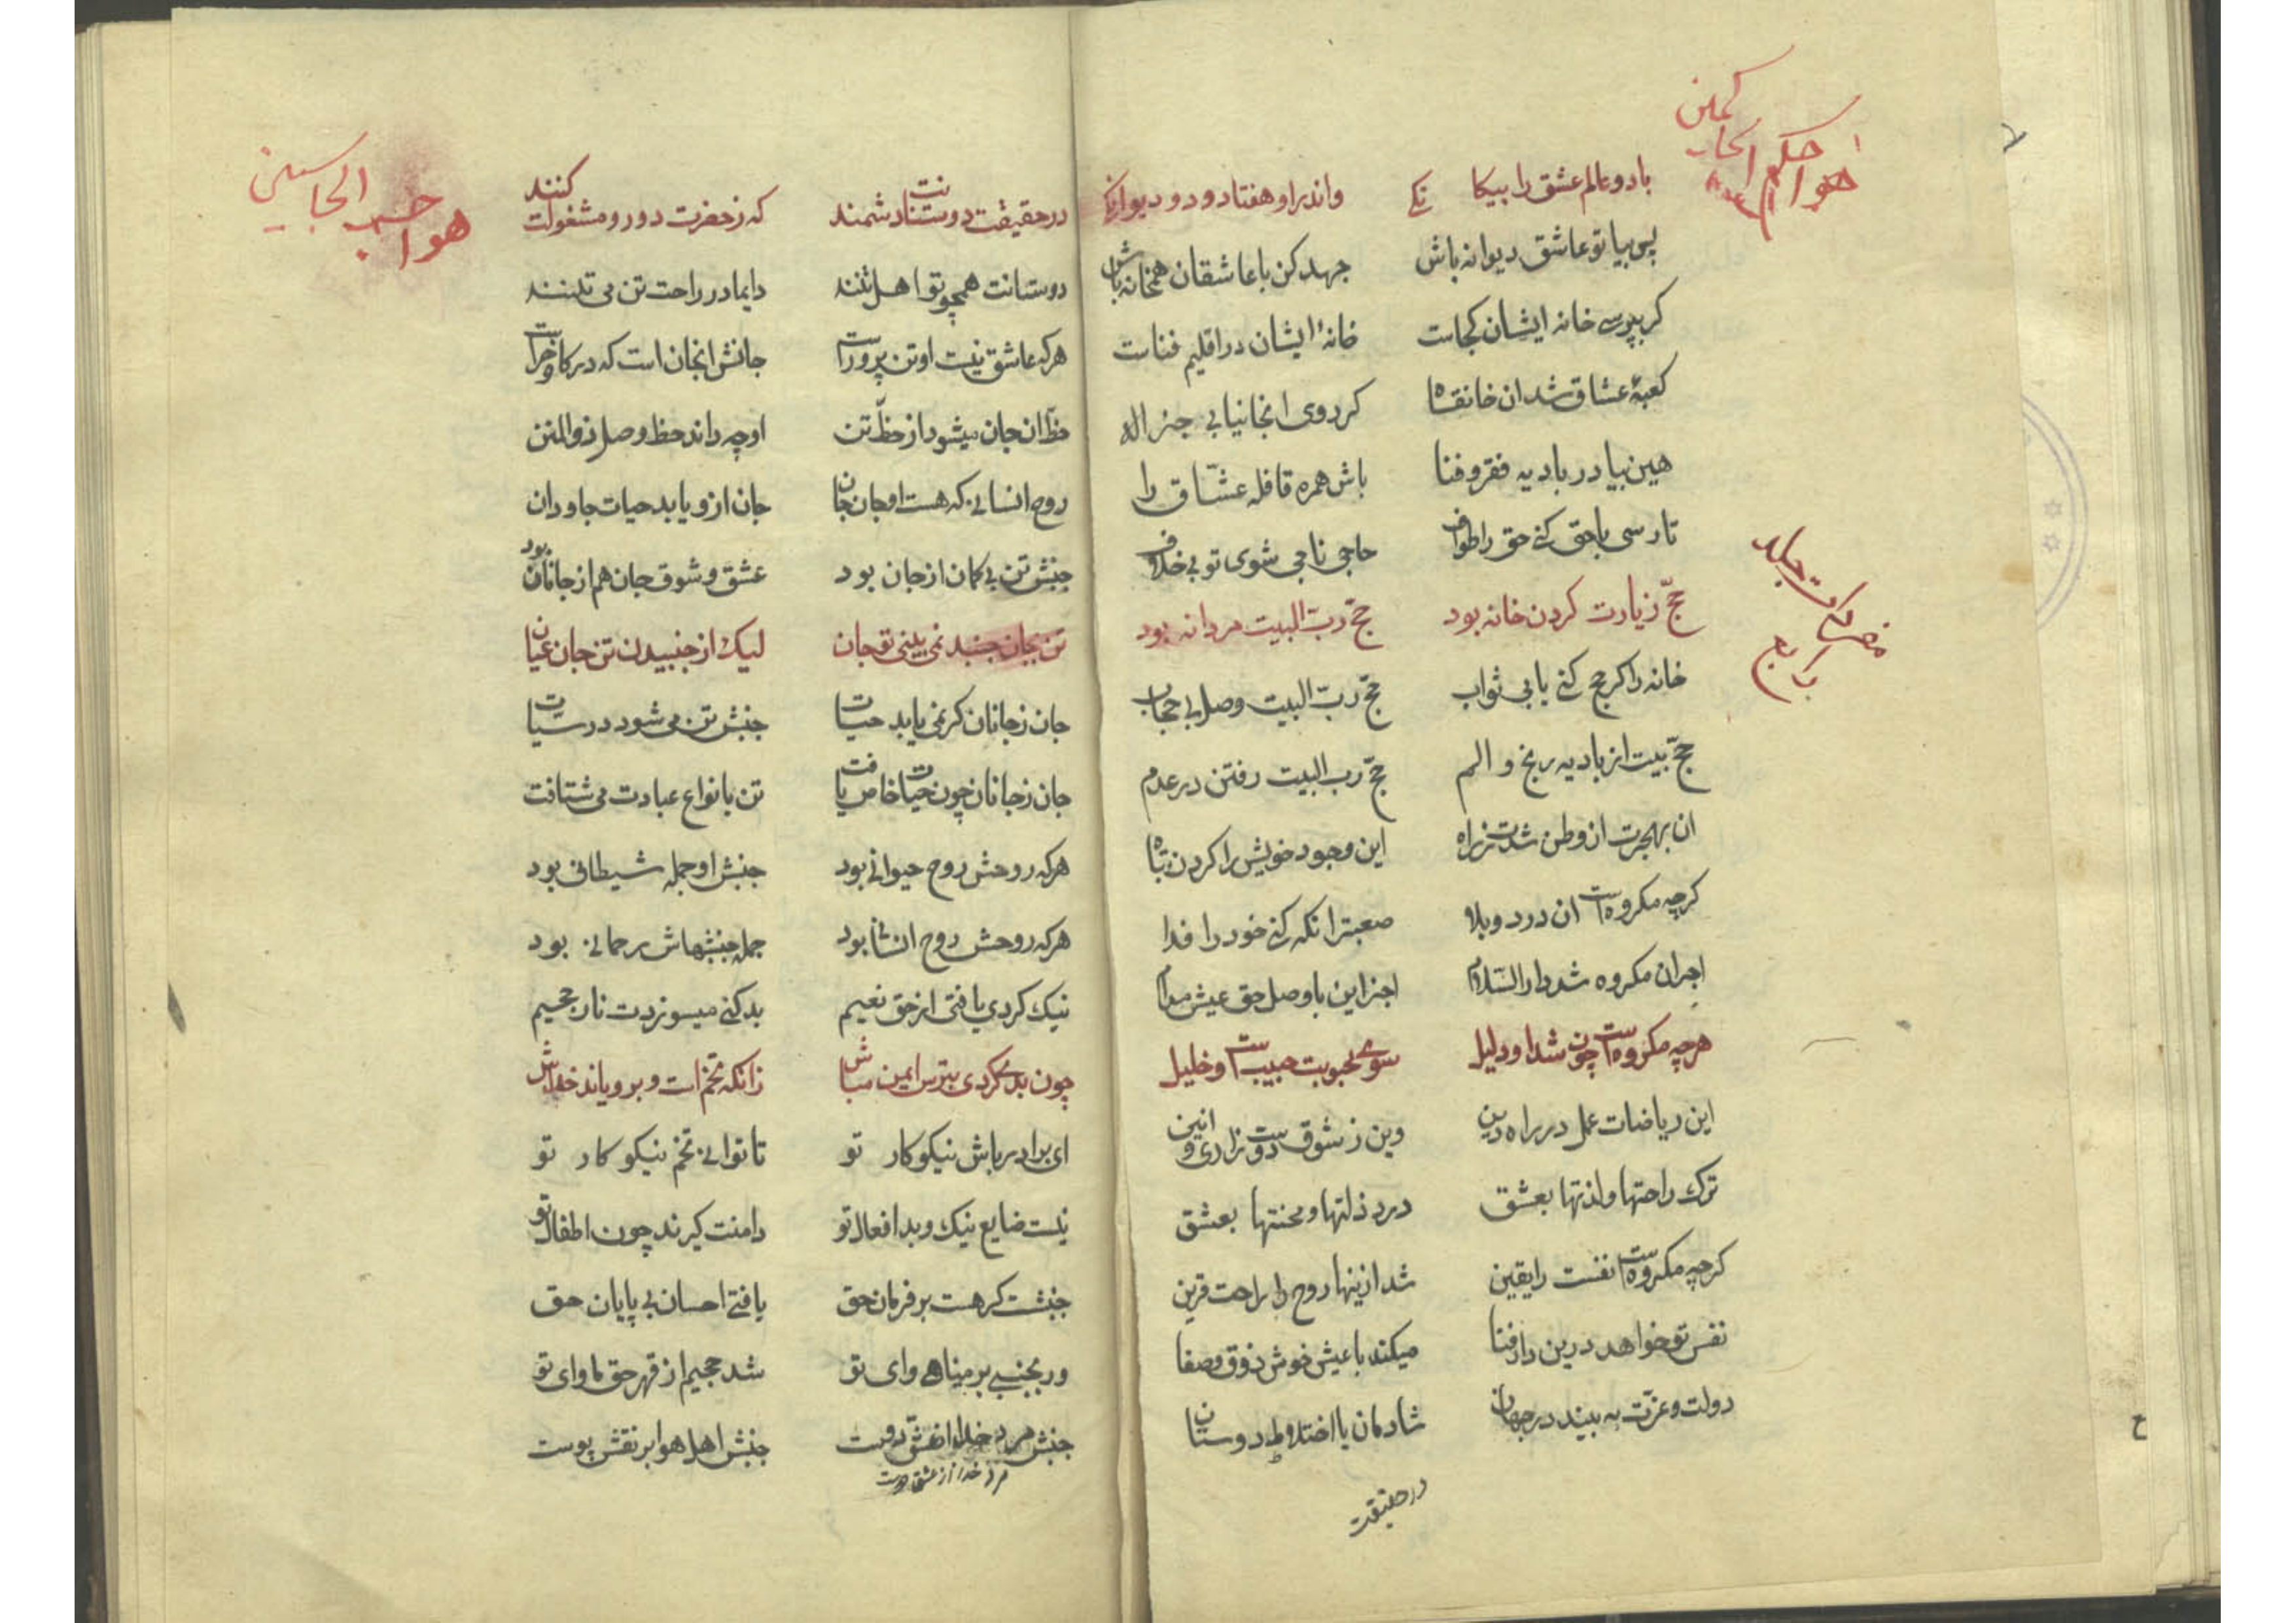 هو احکم الحاکمین
با دو عالم عشق را بیکانکے واندر او هفتاد و دو دیوانکے
پس بیا تو عاشق دیوانه باش جهد کن با عاشقان همخانه باش
کر بپرسے خانه ایشان کجاست خانهٔ ایشان در اقلیم فناست
کعبهٔ عشاق شد ان خانقاه کر دوی انجا نیابی جز اله
هین بیا در بادیه فقر و فنا باش همره قافله عشّاق را
تا رسی با حق کنے حق را طواف حاجی ناجی شوی تو بی خلاف
حجّ زیارت کردن خانه بود حجّ ربّ البیت مردانه بود
خانه را کر حج کنے یابی ثواب حجّ ربّ البیت وصل بی حجاب
حجّ بیت از بادیه رنج و الم حجّ رب البیت رفتن در عدم
ان بهجرت از وطن شدت ز راه این وجود خویش را کردن تباه
کرچه مکروه است ان درد و بلا صعبتر انکه کنے خود را فدا
اجر ان مکروه شد دار السّلام اجز این با وصل حق عیش مدام
هرچه مکروه است چون شد او دلیل سوے محبوبت حبیب است و خلیل
این ریاضات عمل در راه دین وین ز شوق دوست زاری و انین
ترک راحتها و لذتها بعشق درد ذلتها و محنتها بعشق
کرچه مکروه است نفست را یقین شد ازینها روح را راحت قرین
نفس تو خواهد درین دار فنا میکند با عیش خوش ذوق و صفا
دولت و عزّت به بیند در جهان شادمان با اختلاط دوستان
در حقیقت
هو احسب الحاسبین
در حقیقت دوستانت دشمنند که ز حضرت دور و مشغولت کنند
دوستانت همچو تو اهل تنند دایما در راحت تن می تنند
هرکه عاشق نیست او تن پرور است جانش انجان است که در کاو و خر است
حظّ ان جان میشود از حظّ تن او چه داند حظ وصل ذو المنن
روح انسانی که هست او جان جان جان ازو یابد حیات جاودان
جنبش تن بی کمان از جان بود عشق و شوق جان هم از جانان بود
تن بجان جنبد نمی بینی تو جان لیک از جنبیدن تن جان عیان
جان ز جانان کر نمی یابد حیات جنبش تن می شود در سیّات
جان ز جانان چون حیات خاص یافت تن بانواع عبادت می شتافت
هرکه روحش روح حیوانی بود جنبش او جمله شیطانی بود
هرکه روحش روح انسانی بود جمله جنبشهاش رحمانی بود
نیک کردی یافتی از حق نعیم بد کنے میسوزدت نار جحیم
چون بدے کردی بترس ایمن مباش زانکه تخم است و برویاند خداش
ای برادر باش نیکو کار تو تا توانی تخم نیکو کار تو
نیست ضایع نیک و بد افعال تو دامنت کیرند چون اطفال تو
جنبشت کر هست بر فرمان حق یافتے احسان بی پایان حق
ور بجنبے بر مناهے وای تو شد جحیم از قهر حق ماوای تو
جنبش مرد خدا از عشق دوست جنبش اهل هوا بر نقش پوست
مرد خدا از عشق دوست